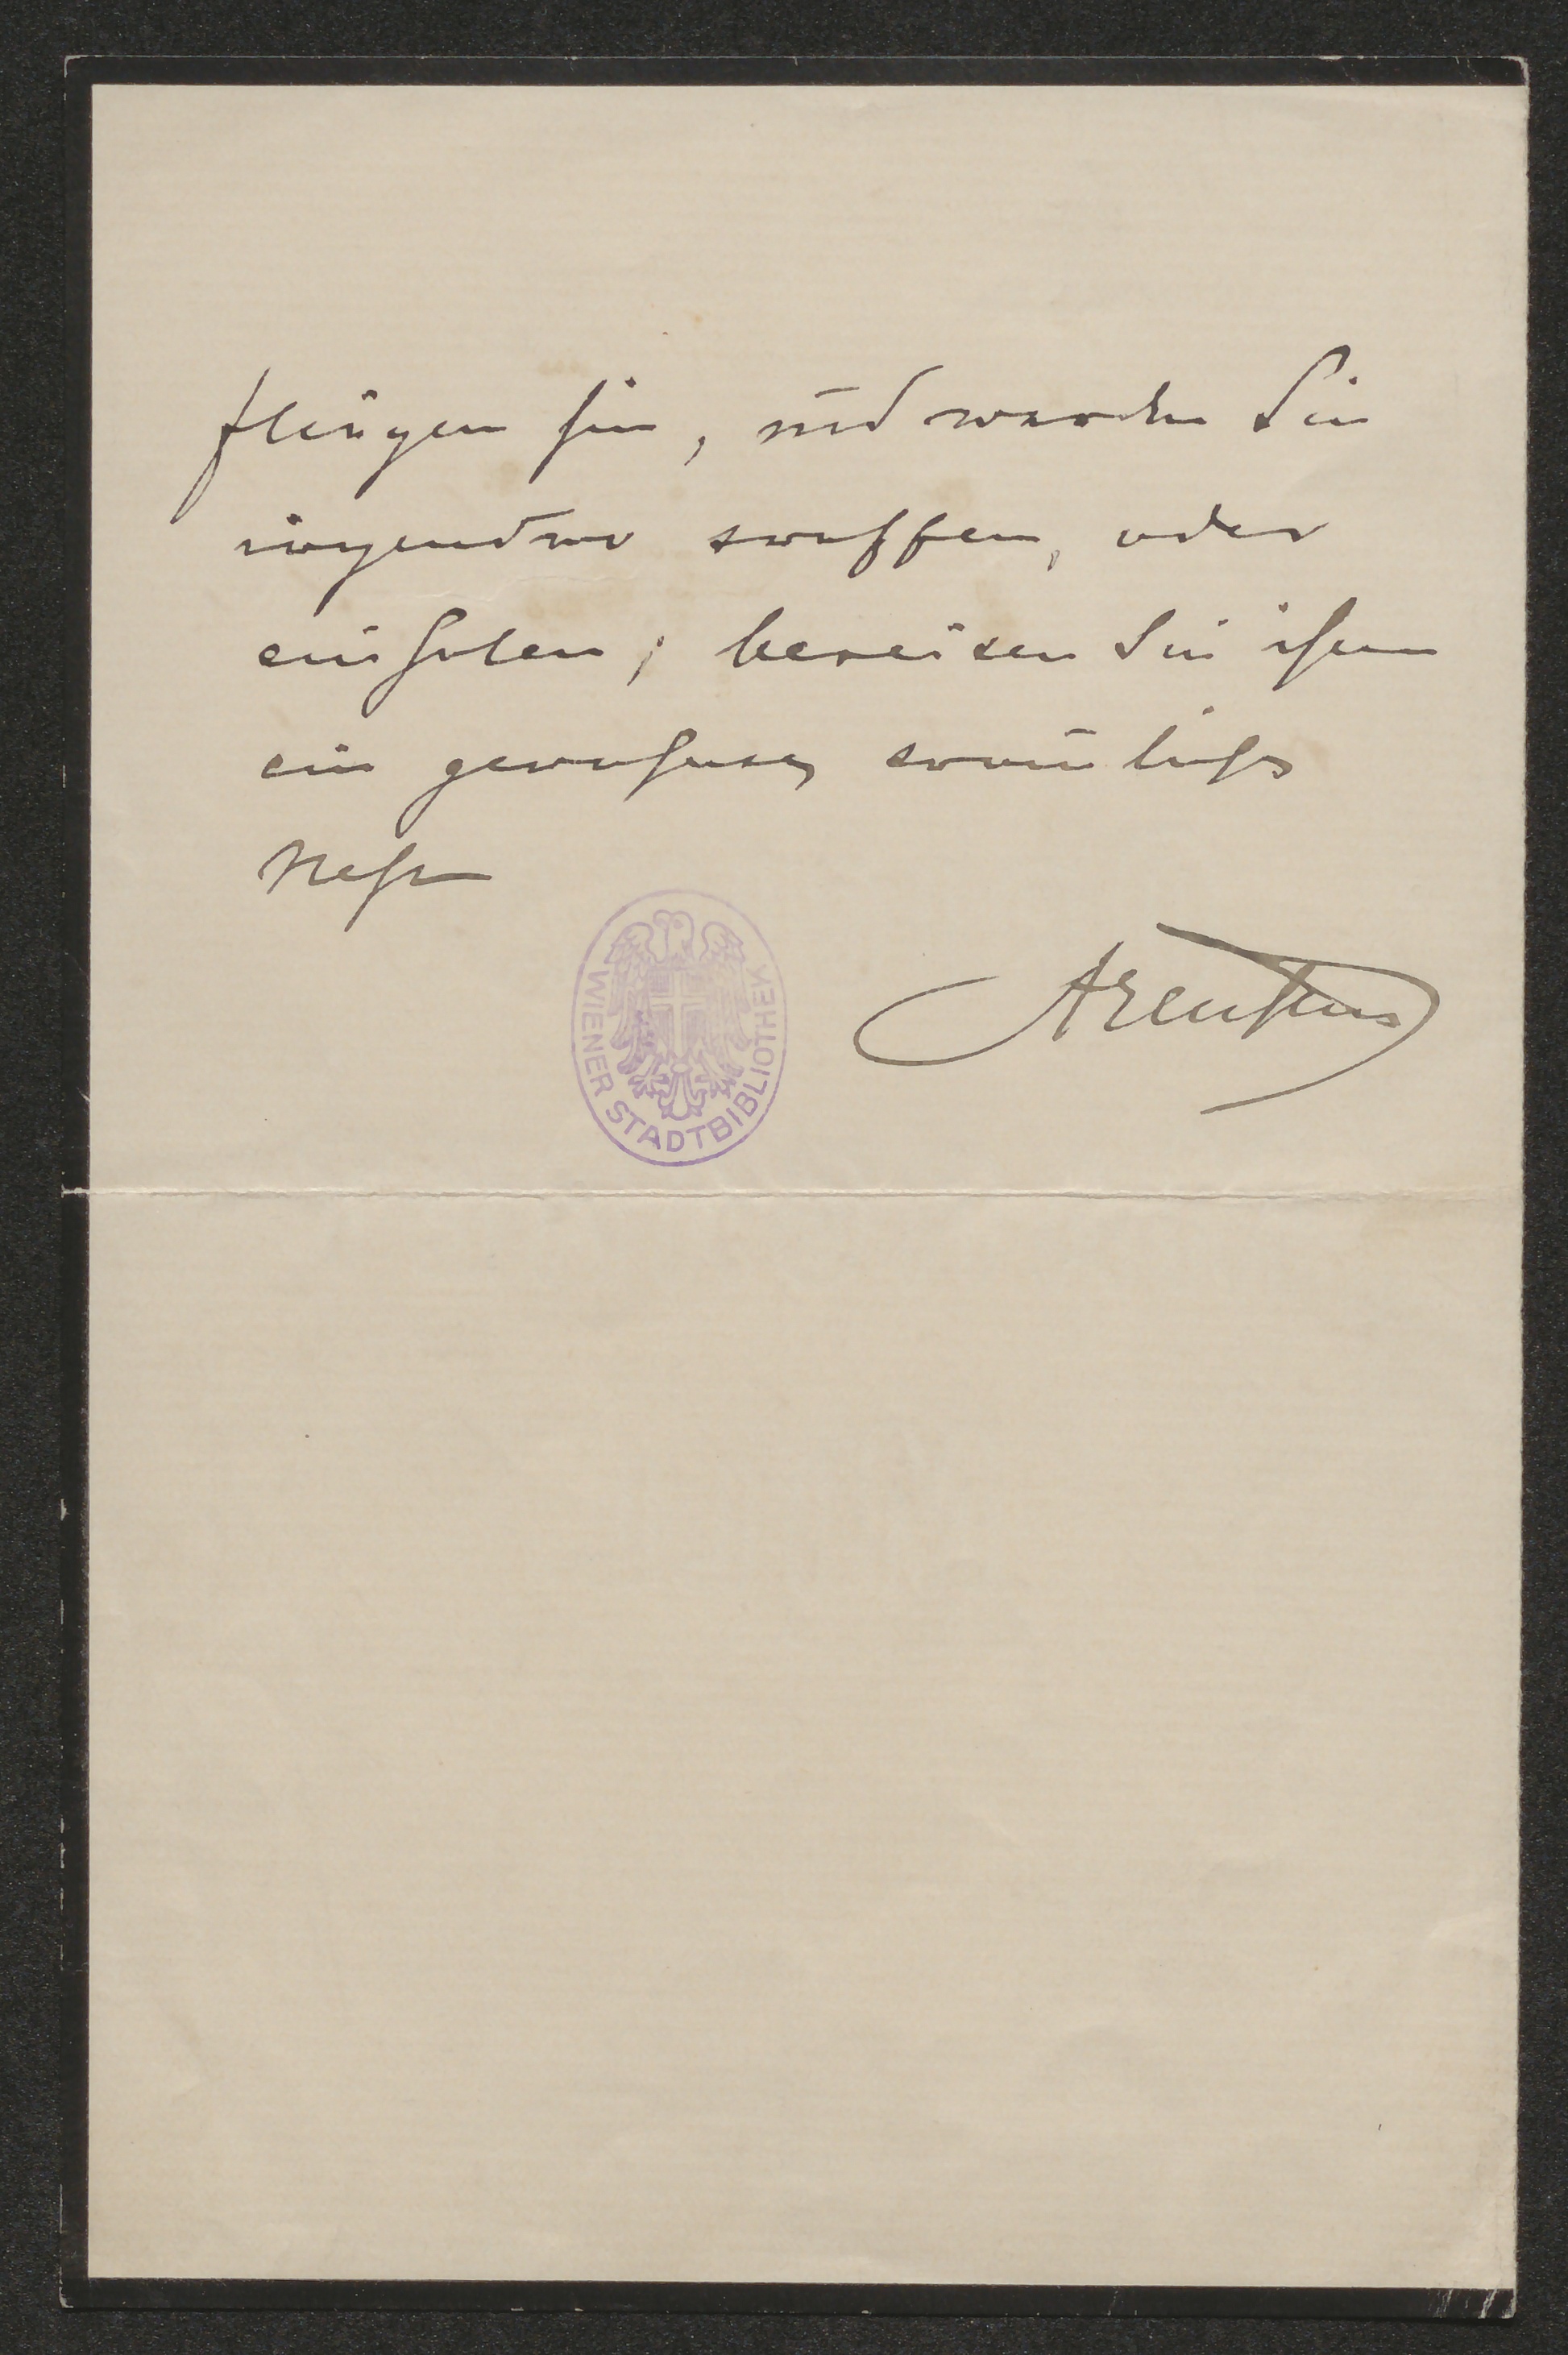 fliegen hin, und werden Sie
irgendwo treffen, oder
einholen; bereiten Sie ihnen
ein gewohntes trauliches
Nest
WIENER STADTBIBLIOTHEK